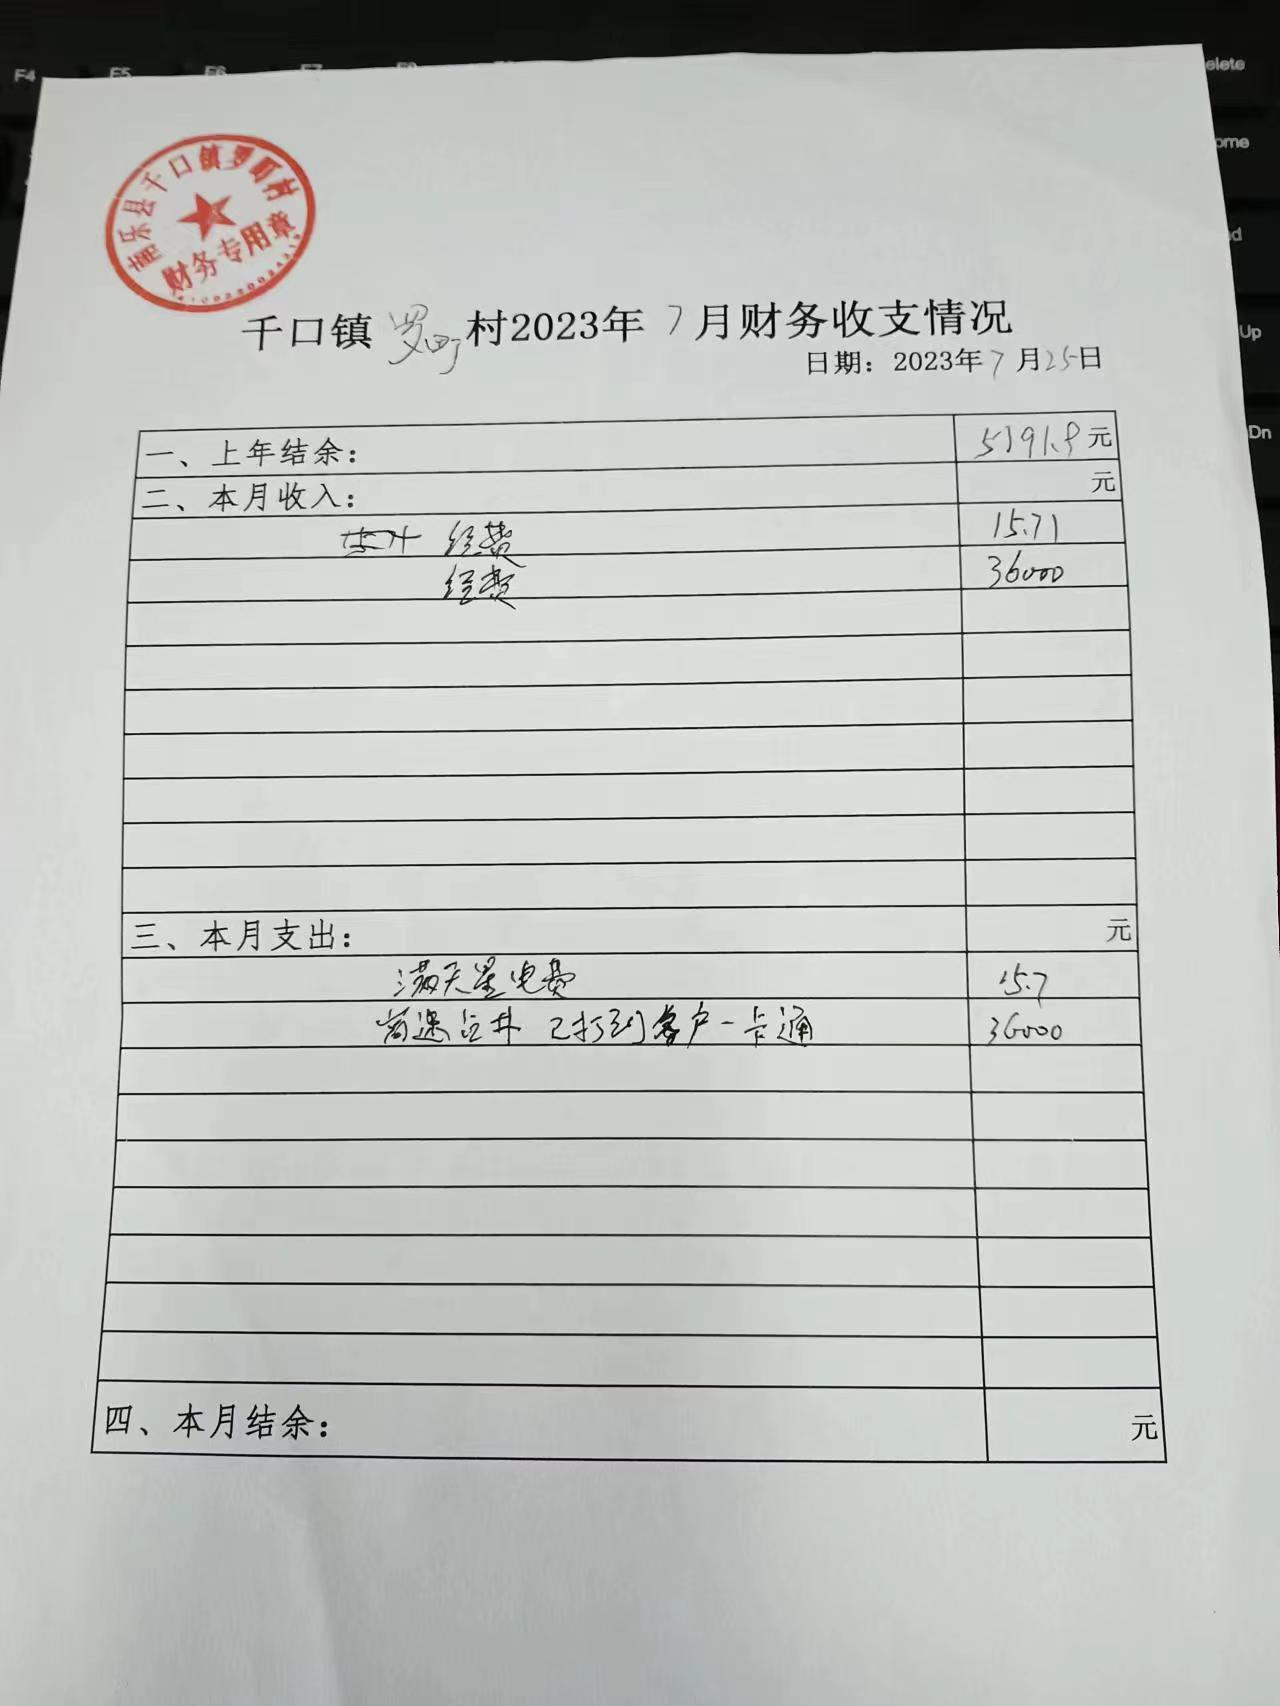 F4 F5 F6 F7
elete
ome
nd
Up
Dn
南乐县千口镇罗町村
财务专用章
千口镇罗町村2023年7月财务收支情况
日期：2023年7月25日
一、上年结余： 5391.9元
二、本月收入： 元
经费 15.71
经费 36000
三、本月支出： 元
满天星电费 15.7
高速占井 已打到客户一卡通 36000
四、本月结余： 元